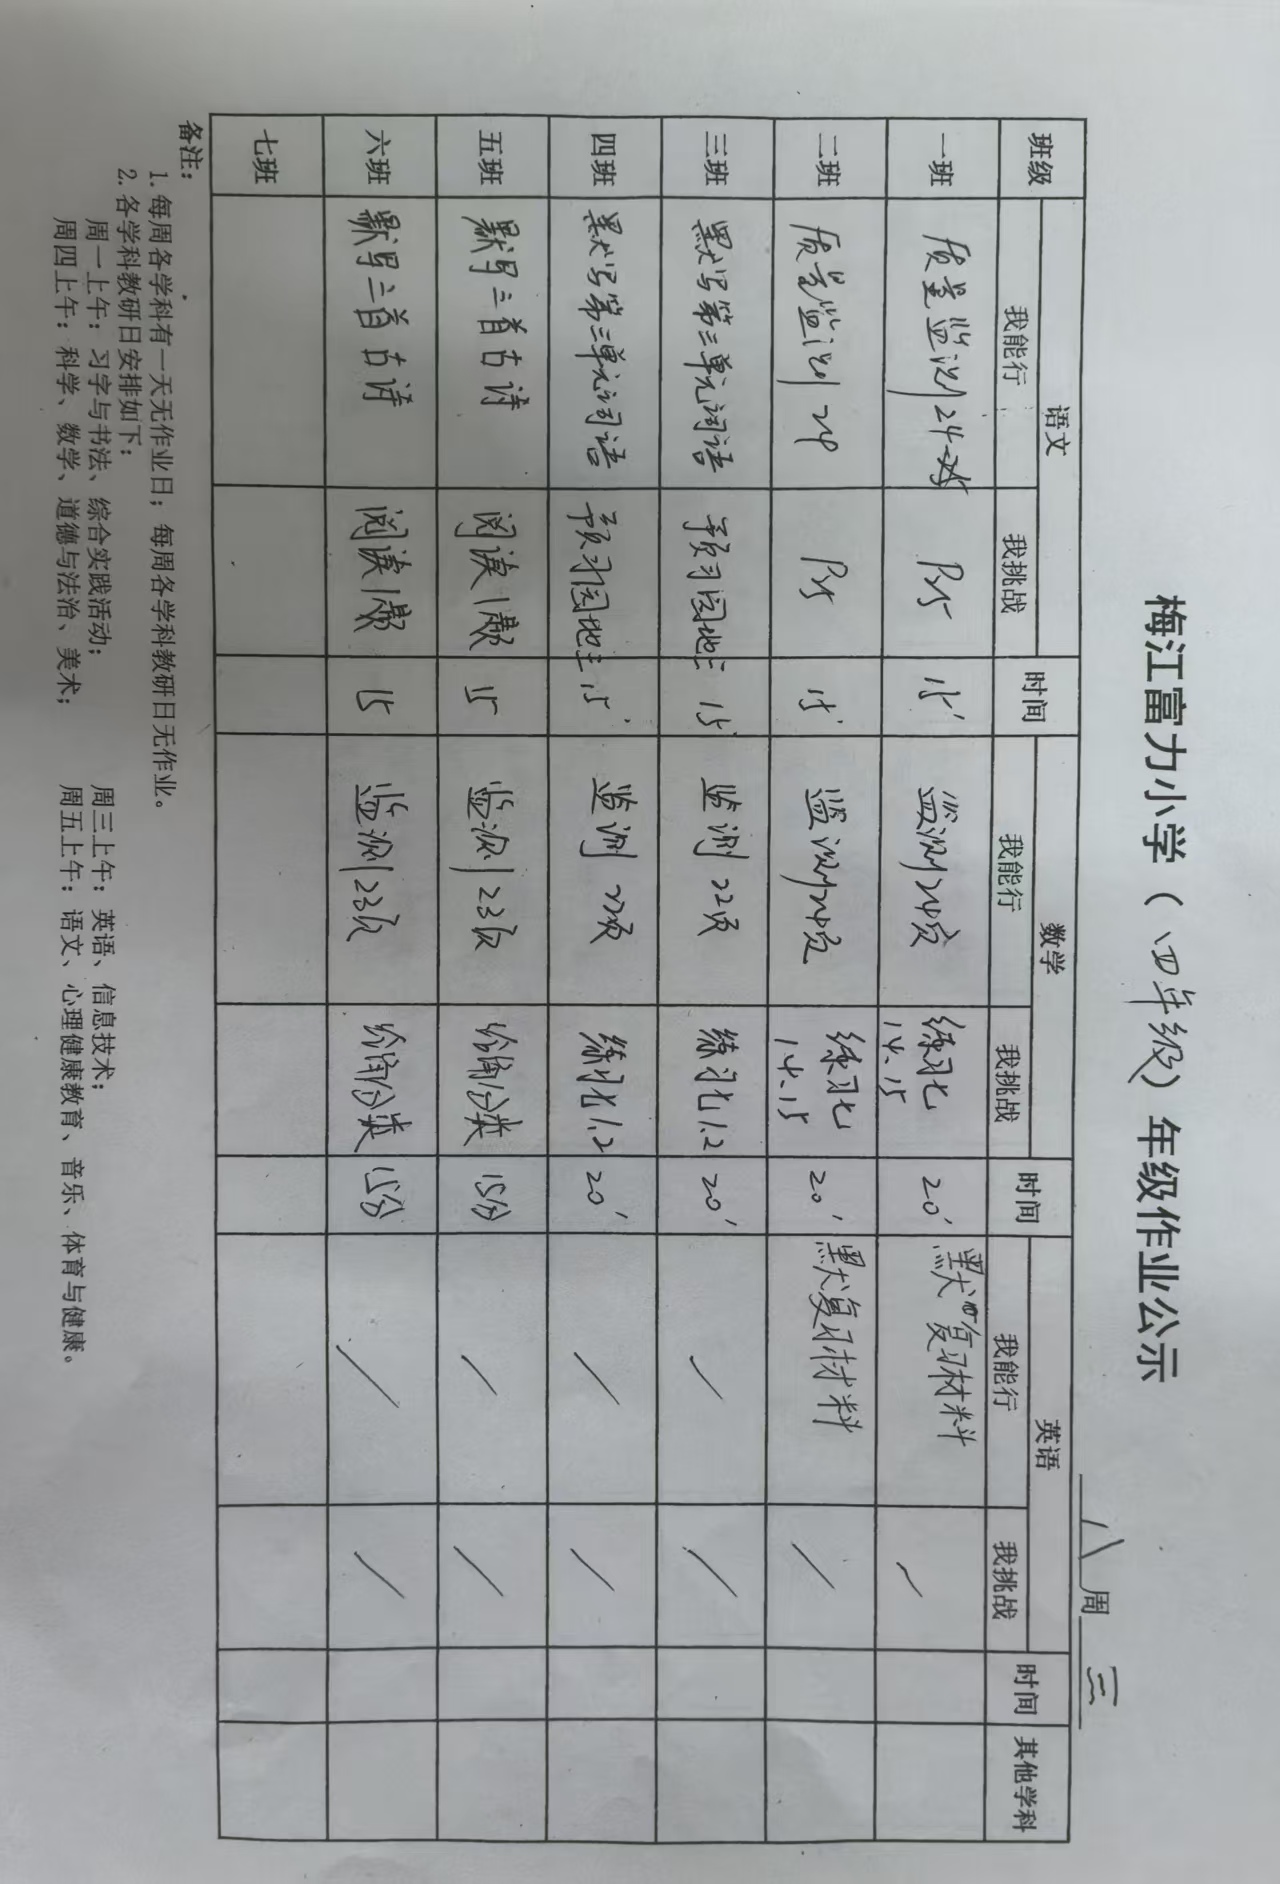 梅江富力小学（四年级）年级作业公示
八 周 三
班级 语文 时间 数学 时间 英语 时间 其他学科
我能行 我挑战 我能行 我挑战 我能行 我挑战
一班 质量监测24 P25 15' 监测24页 练习七 14.15 20' 默四复习材料 /
二班 质量监测24 P25 15' 监测24页 练习七 14.15 20' 默复习材料 /
三班 默写第三单元词语 预习园地三 15' 监测22页 练习七1.2 20' / /
四班 默写第三单元词语 预习园地三 15' 监测22页 练习七1.2 20' / /
五班 默写三首古诗 阅读1题 15 监测23页 给角分类 15分 / /
六班 默写三首古诗 阅读1题 15 监测23页 给角分类 15分 / /
七班
备注：
1. 每周各学科有一天无作业日；每周各学科教研日无作业。
2. 各学科教研日安排如下：
周一上午：习字与书法、综合实践活动； 周三上午：英语、信息技术；
周四上午：科学、数学、道德与法治、美术； 周五上午：语文、心理健康教育、音乐、体育与健康。